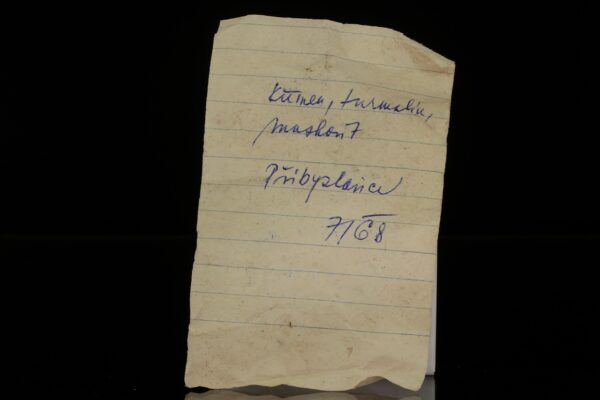 Křemen, turmalín,
muskovit
Přibyslavice
7/68